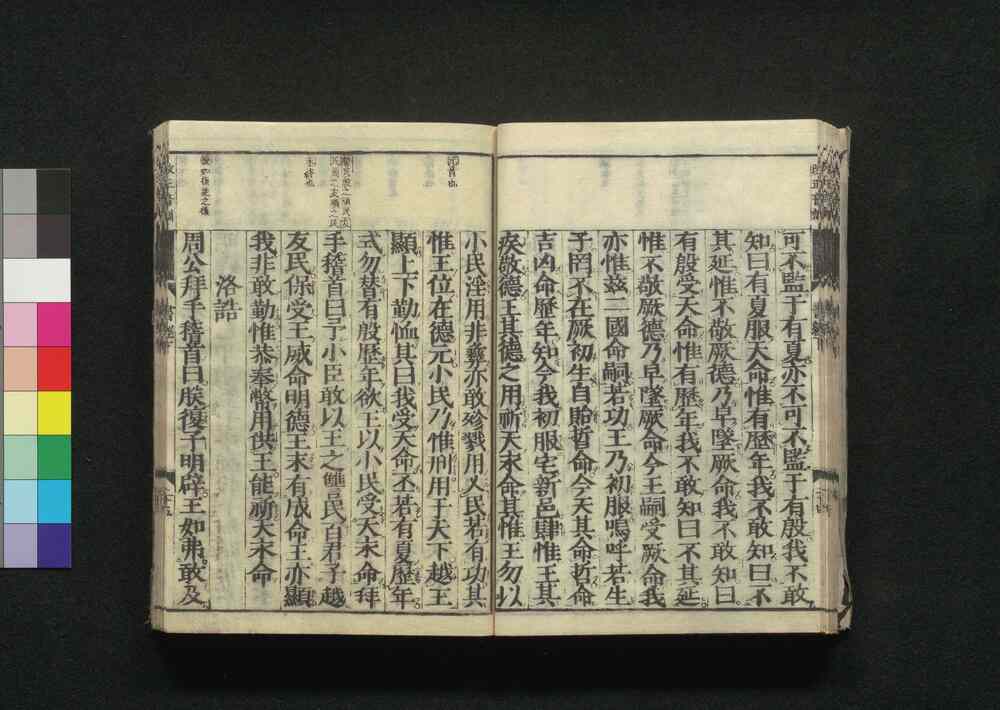 可不監于有夏亦不可不監于有殷我不敢
知曰有夏服天命惟有歷年我不敢知曰不
其延惟不敬厥德乃早墜厥命我不敢知曰
有殷受天命惟有歷年我不敢知曰不其延
惟不敬厥德乃早墜厥命今王嗣受厥命我
亦惟茲二國命嗣若功王乃初服嗚呼若生
子罔不在厥初生自貽哲命今天其命哲命
吉凶命歷年知今我初服宅新邑肆惟王其
疾敬德王其德之用祈天永命其惟王勿以
小民淫用非彝亦敢殄戮用乂民若有功其
惟王位在德元小民乃惟刑用于天下越王
顯上下勤恤其曰我受天命丕若有夏歷年
式勿替有殷歷年欲王以小民受天永命拜
手稽首曰予小臣敢以王之讎民百君子越
友民保受王威命明德王末有成命王亦顯
我非敢勤惟恭奉幣用供王能祈天永命
洛誥
周公拜手稽首曰朕復子明辟王如弗敢及